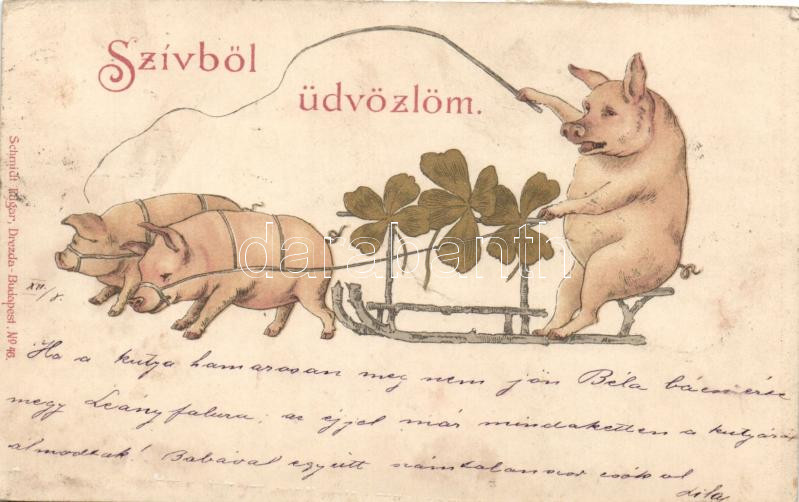 Szívből
üdvözlöm.
Schmidt Edgar, Drezda-Budapest. No 46.
darabanth.com
XII/8.
Ha a kutya hamarosan meg nem jön Béla bácsi érte
megy Leányfalura, az éjjel már mindaketten a kutyáról
álmodtak! Babával együtt számtalanszor csókol
Lila